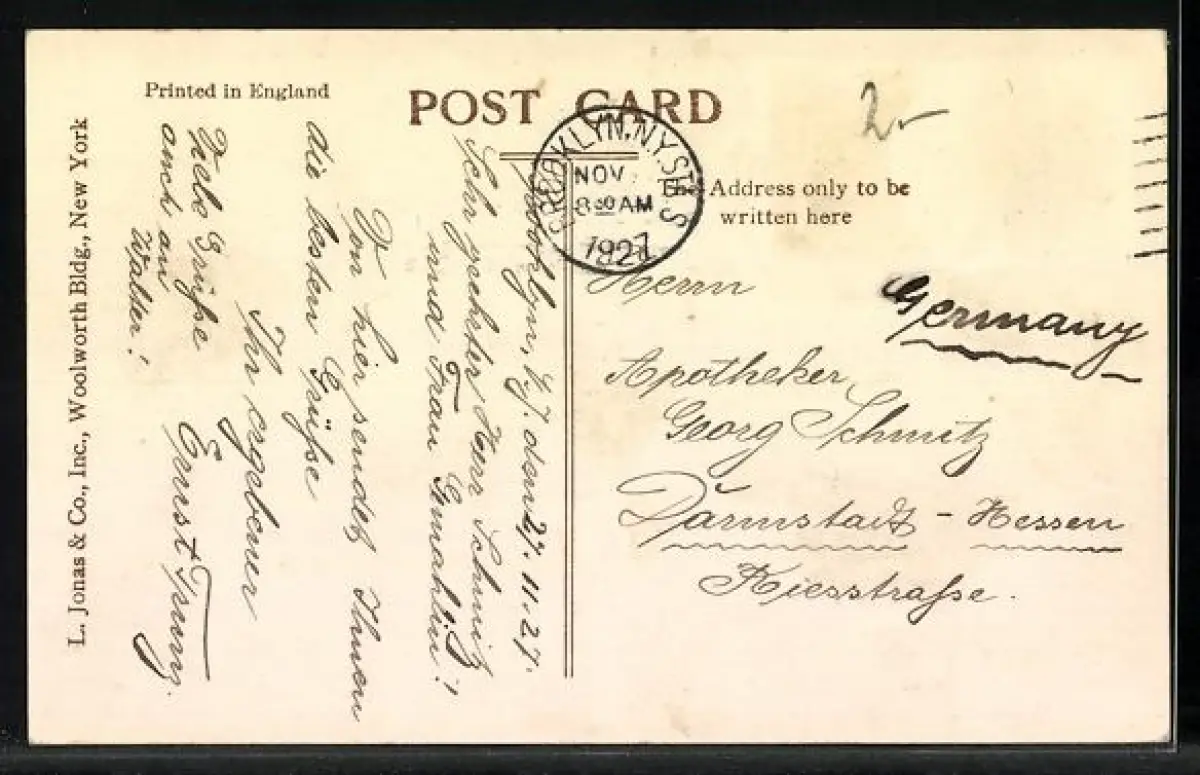 Printed in England
POST CARD
L. Jonas & Co., Inc., Woolworth Bldg., New York
BROOKLYN, N.Y. STA. S
NOV
8 30 AM
1927
2-
The Address only to be
written here
Brooklyn, N.J. den 27. 11. 27.
Sehr geehrter Herr Schmitz
und Frau Gemahlin!
Von hier sendet Ihnen
die besten Grüße
Ihr ergebener
Ernst
Viele Grüße
auch an
Walter!
Herrn
Germany
Apotheker
Georg Schmitz
Darmstadt - Hessen
Kiesstraße.